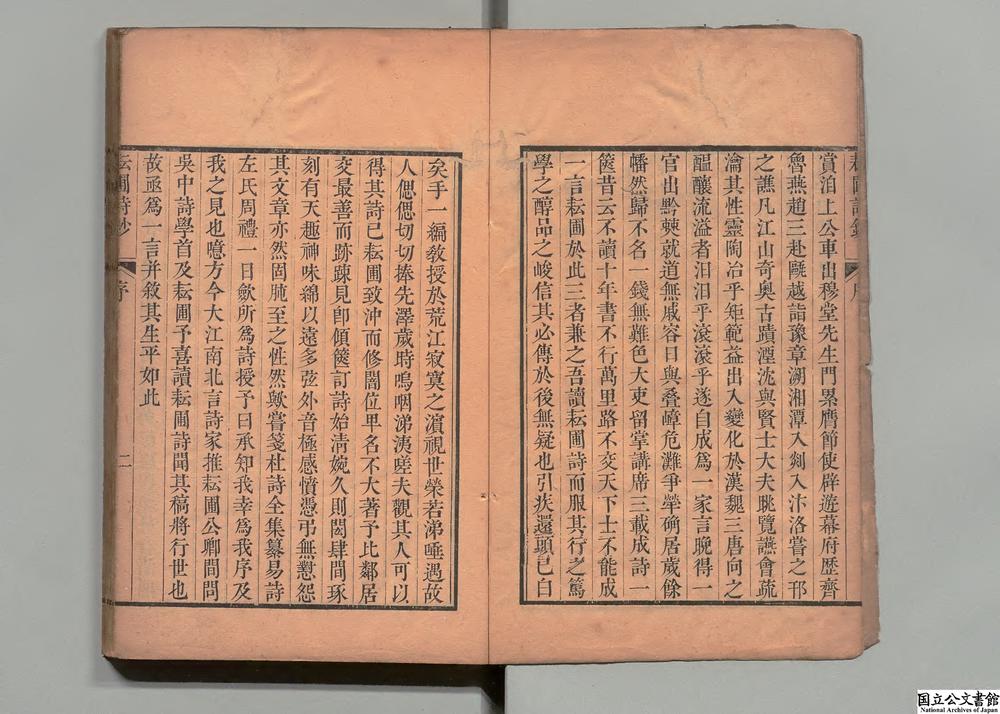 賞泊上公車出穆堂先生門累膺節使辟遊幕府歷齊
魯燕趙三赴甌越詣豫章溯湘潭入剡入汴洛嘗之邗
之譙凡江山奇奧古蹟湮沈與賢士大夫眺覽讌會疏
瀹其性靈陶冶乎矩範益出入變化於漢魏三唐向之
醞釀流溢者汨汨乎滾滾乎遂自成爲一家言晚得一
官出黔棘就道無戚容日與叠嶂危灘爭犖确居歲餘
幡然歸不名一錢無難色大吏留掌講席三載成詩一
篋昔云不讀十年書不行萬里路不交天下士不能成
一言耘圃於此三者兼之吾讀耘圃詩而服其行之篤
學之醇品之峻信其必傳於後無疑也引疾還頭已白
矣手一編教授於荒江寂寞之濱視世榮若涕唾遇故
人偲偲切切捧先澤歲時嗚咽涕洟嗟夫觀其人可以
得其詩已耘圃致沖而修闇位卑名不大著予比鄰居
交最善而跡踈見卽傾篋訂詩始淸婉久則閎肆間琢
刻有天趣神味綿以遠多弦外音極感憤憑弔無懟怨
其文章亦然固肫至之性然歟嘗箋杜詩全集纂易詩
左氏周禮一日斂所爲詩授予曰承知我幸爲我序及
我之見也噫方今大江南北言詩家推耘圃公卿間問
吳中詩學首及耘圃予喜讀耘圃詩聞其稿將行世也
故亟爲一言并敘其生平如此
耘圃詩鈔
序
二
国立公文書館
National Archives of Japan